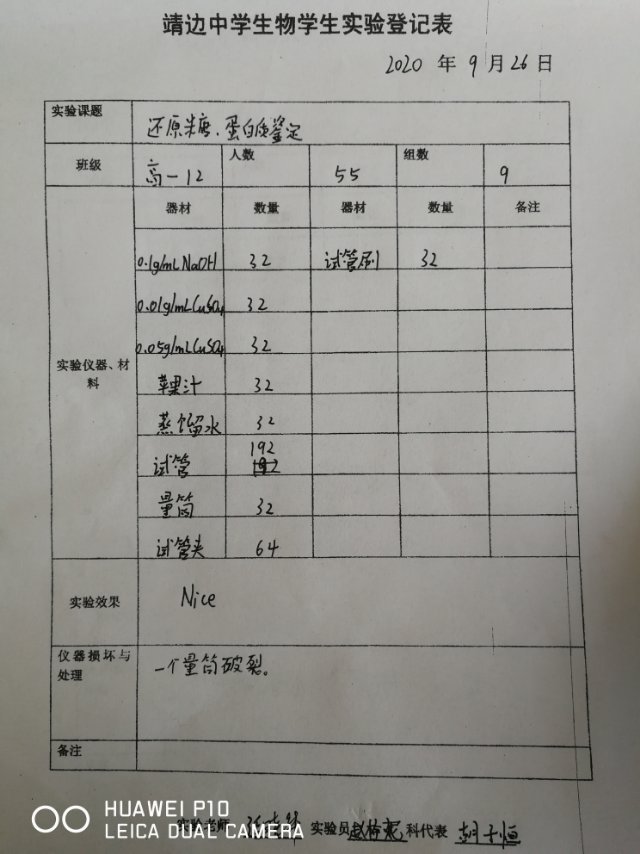 靖边中学生物学生实验登记表
2020 年 9 月 26 日
实验课题 还原糖、蛋白质鉴定
班级 高一12 人数 55 组数 9
器材 数量 器材 数量 备注
0.1g/mL NaOH 32 试管刷 32
0.01g/mL CuSO4 32
0.05g/mL CuSO4 32
实验仪器、材料
苹果汁 32
蒸馏水 32
试管 192
量筒 32
试管夹 64
实验效果 Nice
仪器损坏与处理 一个量筒破裂。
备注
实验老师 实验员 科代表 胡子恒
HUAWEI P10
LEICA DUAL CAMERA